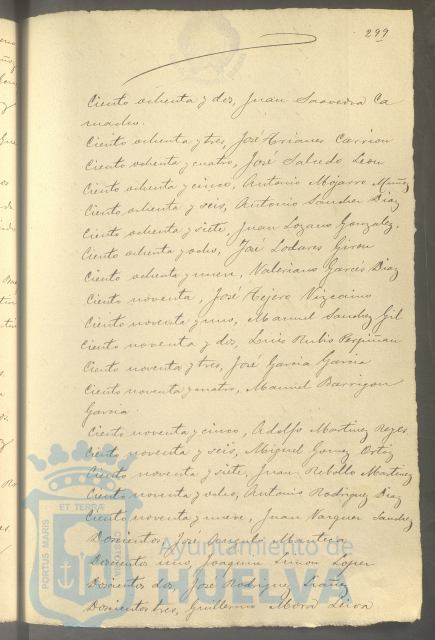 299
Ciento ochenta y dos, Juan Saavedra Ca
macho.
Ciento ochenta y tres, José Arianes Carrion
Ciento ochenta y cuatro, José Salcedo Leon
Ciento ochenta y cinco, Antonio Mojarro Muñoz
Ciento ochenta y seis, Antonio Sanchez Diaz
Ciento ochenta y siete, Juan Lozano Gonzalez.
Ciento ochenta y ocho, José Lodares Giron
Ciento ochenta y nueve, Valeriano Garcés Diaz
Ciento noventa, José Tejero Vizcaino
Ciento noventa y uno, Manuel Sanchez Gil
Ciento noventa y dos, Luis Rubio Perpiñan
Ciento noventa y tres, José Garcia Garcia
Ciento noventa y cuatro, Manuel Barrigon
Garcia.
Ciento noventa y cinco, Adolfo Martinez Reyes.
Ciento noventa y seis, Miguel Gomez Ortiz
Ciento noventa y siete, Juan Rebollo Martinez
Ciento noventa y ocho, Antonio Rodriguez Diaz
Ciento noventa y nueve, Juan Vazquez Sanchez
Doscientos, José Angulo Manteca
Doscientos uno, Joaquin Simon Lopez
Doscientos dos, José Rodriguez
Doscientos tres, Guillermo Mora Leiva
ET TERRÆ
PORTUS MARIS
CUSTODIA
Ayuntamiento de
HUELVA